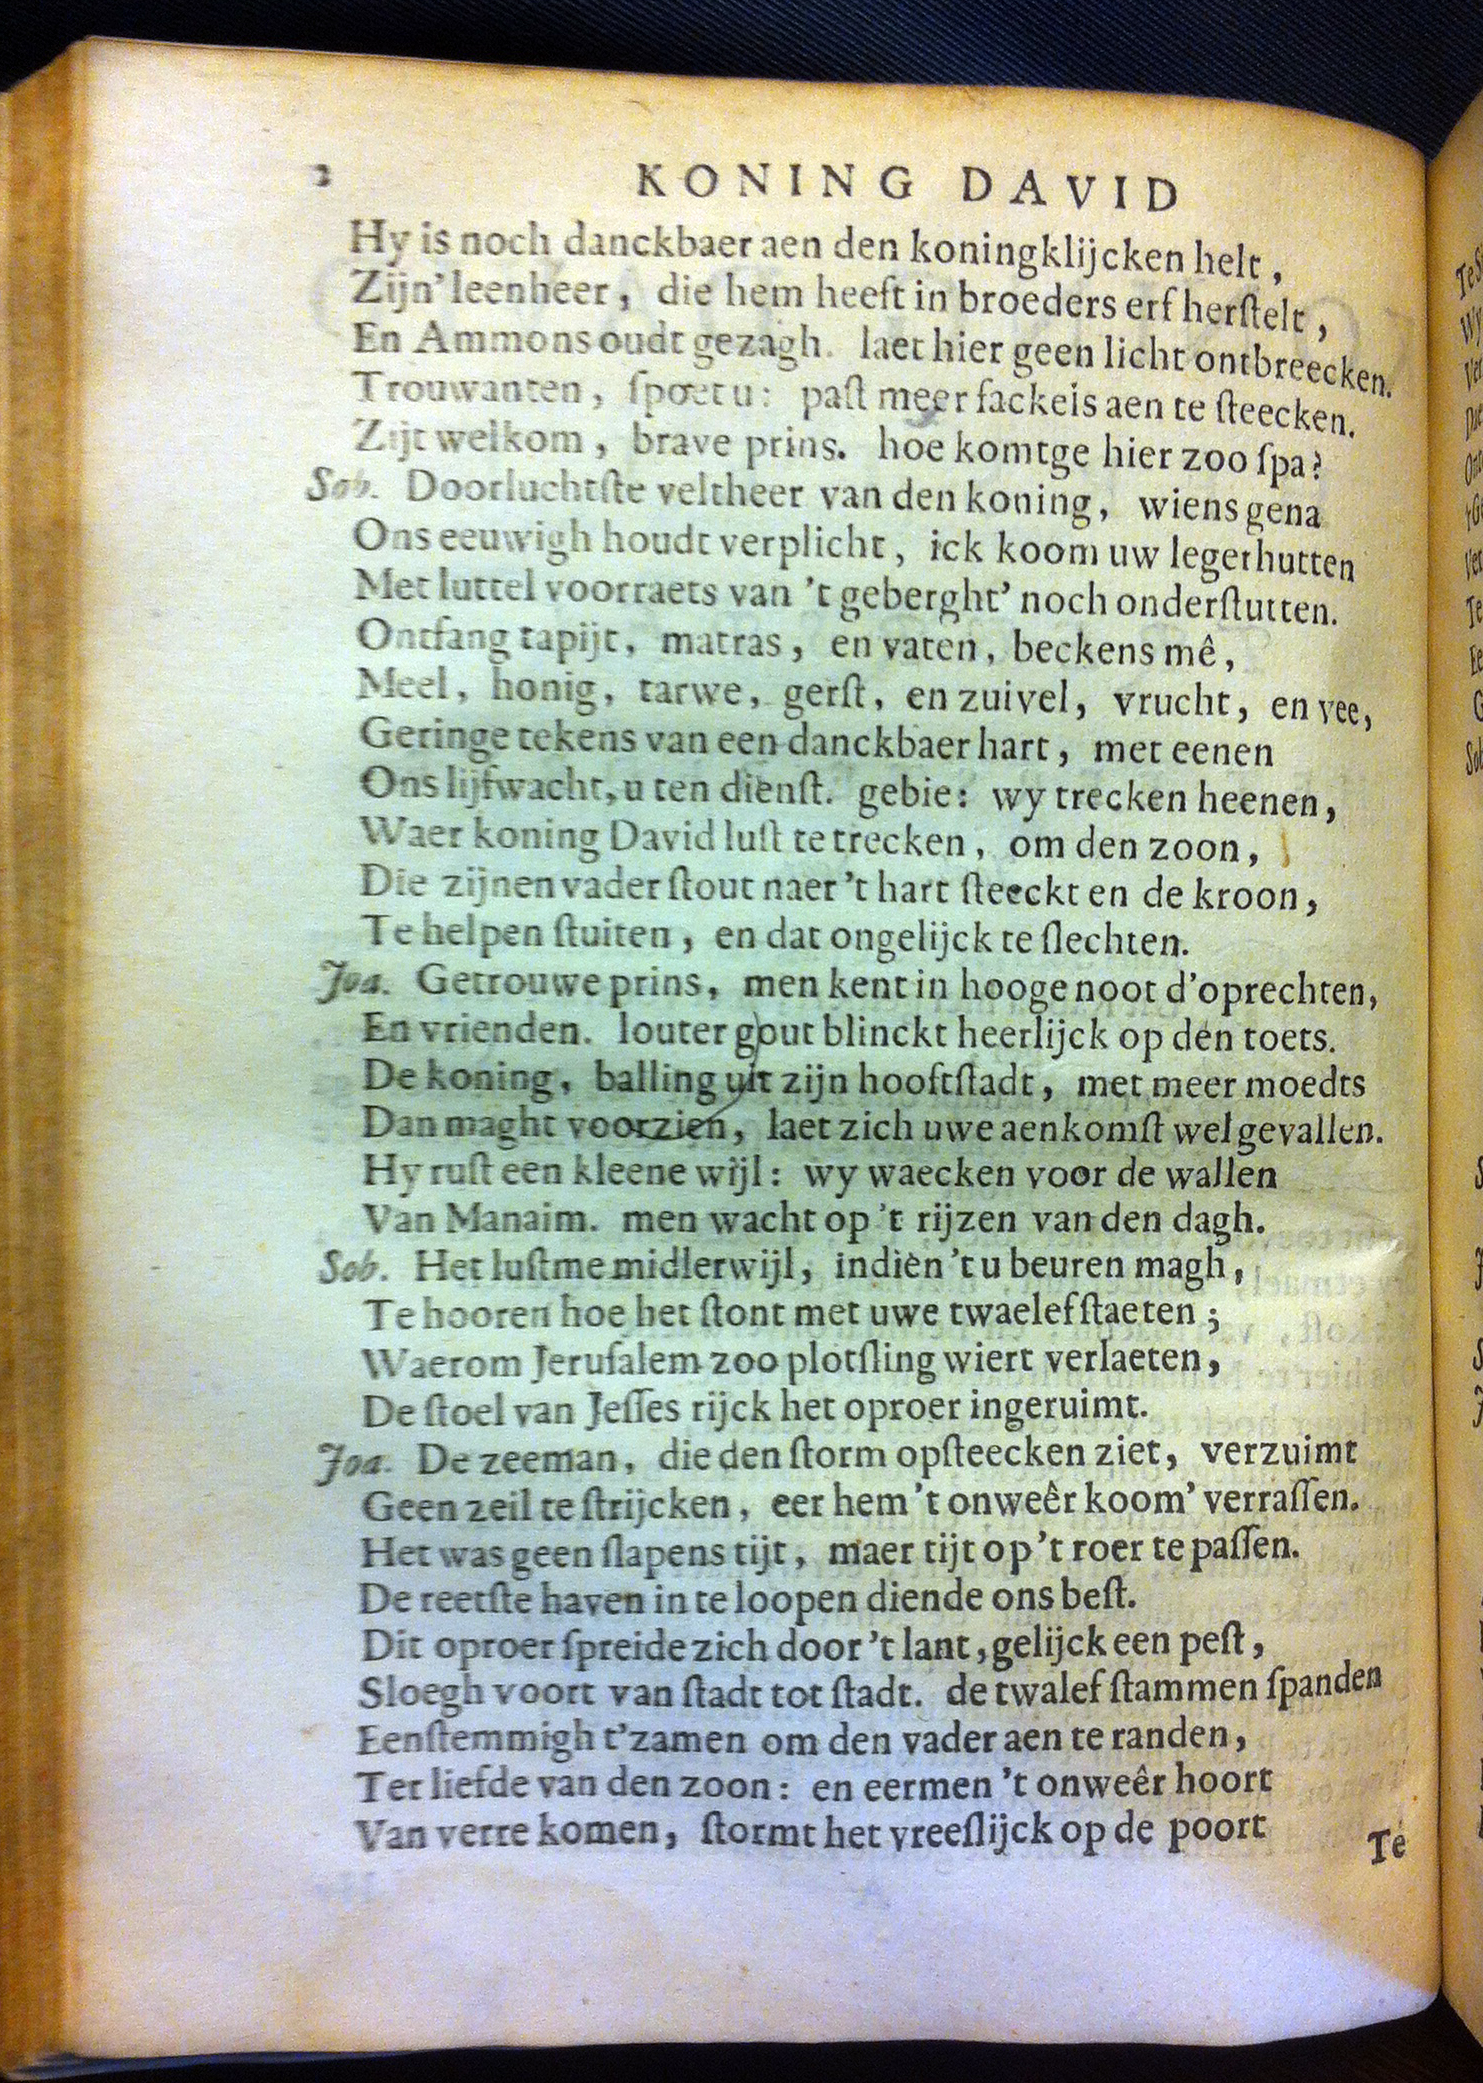 2 KONING DAVID
Hy is noch danckbaer aen den koningklijcken helt,
Zijn' leenheer, die hem heeft in broeders erf herſtelt,
En Ammons oudt gezagh. laet hier geen licht ontbreecken.
Trouwanten, ſpoet u: paſt meer fackels aen te ſteecken.
Zijt welkom, brave prins. hoe komtge hier zoo ſpa?
Sob. Doorluchtſte veltheer van den koning, wiens gena
Ons eeuwigh houdt verplicht, ick koom uw legerhutten
Met luttel voorraets van 't geberght' noch onderſtutten.
Ontfang tapijt, matras, en vaten, beckens mê,
Meel, honig, tarwe, gerſt, en zuivel, vrucht, en vee,
Geringe tekens van een danckbaer hart, met eenen
Ons lijfwacht, u ten dienſt. gebie: wy trecken heenen,
Waer koning David luſt te trecken, om den zoon,
Die zijnen vader ſtout naer 't hart ſteeckt en de kroon,
Te helpen ſtuiten, en dat ongelijck te ſlechten.
Joa. Getrouwe prins, men kent in hooge noot d'oprechten,
En vrienden. louter gout blinckt heerlijck op den toets.
De koning, balling uit zijn hooftſtadt, met meer moedts
Dan maght voorzien, laet zich uwe aenkomſt wel gevallen.
Hy ruſt een kleene wijl: wy waecken voor de wallen
Van Manaim. men wacht op 't rijzen van den dagh.
Sob. Het luſtme midlerwijl, indien 't u beuren magh,
Te hooren hoe het ſtont met uwe twaelefſtaeten;
Waerom Jeruſalem zoo plotſling wiert verlaeten,
De ſtoel van Jeſſes rijck het oproer ingeruimt.
Joa. De zeeman, die den ſtorm opſteecken ziet, verzuimt
Geen zeil te ſtrijcken, eer hem 't onweêr koom' verraſſen.
Het was geen ſlapens tijt, maer tijt op 't roer te paſſen.
De reetſte haven in te loopen diende ons beſt.
Dit oproer ſpreide zich door 't lant, gelijck een peſt,
Sloegh voort van ſtadt tot ſtadt. de twalef ſtammen ſpanden
Eenſtemmigh t'zamen om den vader aen te randen,
Ter liefde van den zoon: en eermen 't onweêr hoort
Van verre komen, ſtormt het vreeſlijck op de poort
Te